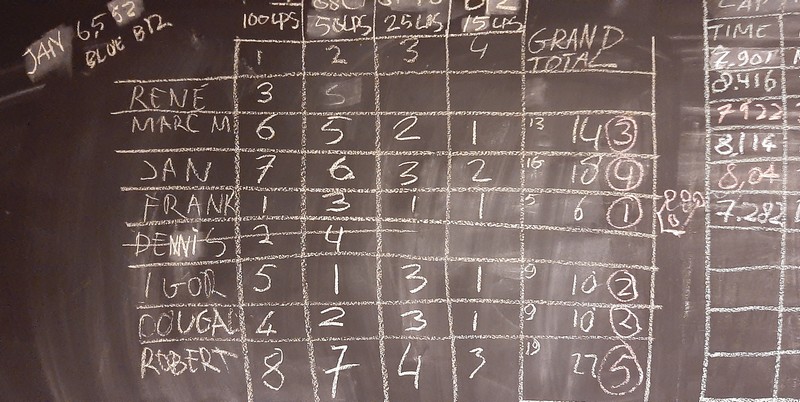 JAN 6.5 83
BLUE BIZ
100 LPS 50 LPS 25 LPS 15 LPS
1 2 3 4 GRAND TOTAL
RENE 3 5
MARC M 6 5 2 1 13 14 3
JAN 7 6 3 2 16 18 4
FRANK 1 3 1 1 5 6 1
DENNIS 2 4
IGOR 5 1 3 1 9 10 2
COUGA 4 2 3 1 9 10 2
ROBERT 8 7 4 3 19 22 5
LAP
TIME
8.416
7922
8,114
8,04
7.282